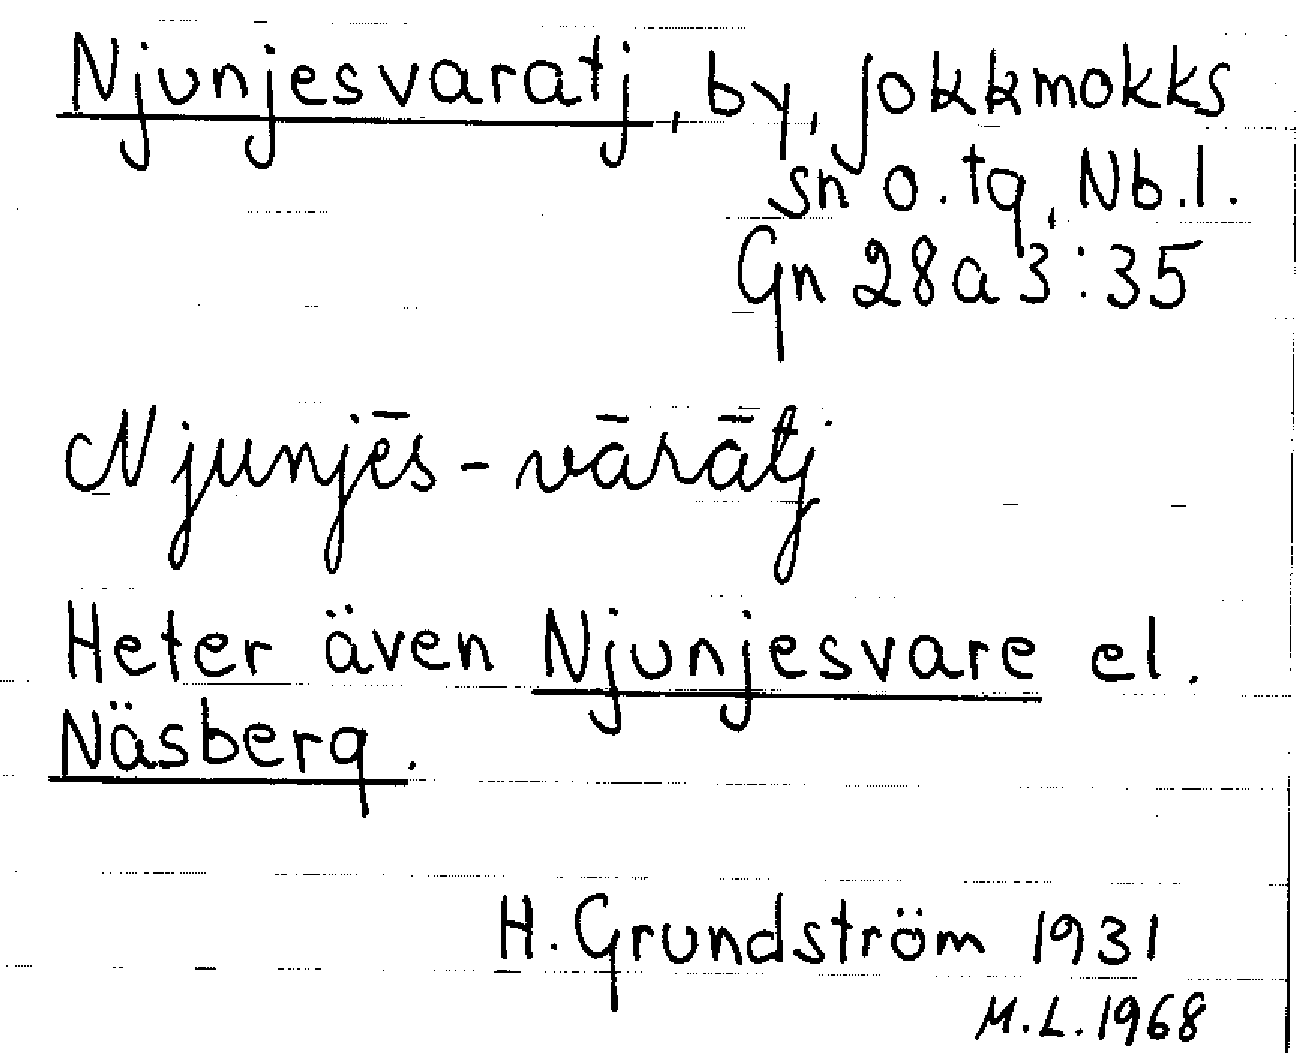 Njunjesvaratj, by, Jokkmokks
sn o. tg, Nb.l.
Gn 28a3:35
Njunjēs-vārātj
Heter även Njunjesvare el.
Näsberg.
H. Grundström 1931
M.L. 1968